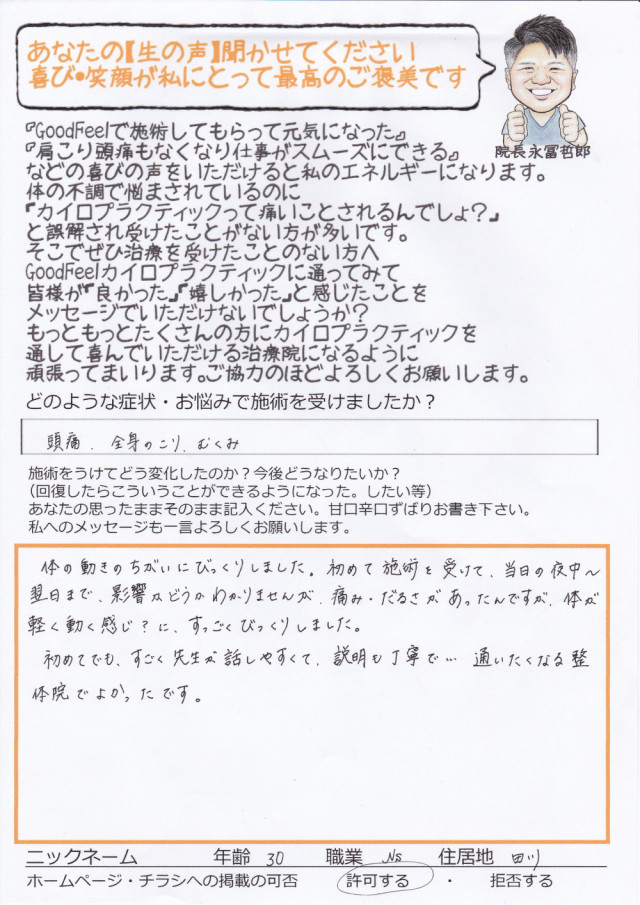 あなたの【生の声】聞かせてください
喜び•笑顔が私にとって最高のご褒美です
院長永冨哲郎
『GoodFeelで施術してもらって元気になった』
『肩こり頭痛もなくなり仕事がスムーズにできる』
などの喜びの声をいただけると私のエネルギーになります。
体の不調で悩まされているのに
『カイロプラクティックって痛いことされるんでしょ？』
と誤解され受けたことがない方が多いです。
そこでぜひ治療を受けたことのない方へ
GoodFeelカイロプラクティックに通ってみて
皆様が『良かった』『嬉しかった』と感じたことを
メッセージでいただけないでしょうか？
もっともっとたくさんの方にカイロプラクティックを
通して喜んでいただける治療院になるように
頑張ってまいります。ご協力のほどよろしくお願いします。
どのような症状・お悩みで施術を受けましたか？
頭痛、全身のこり、むくみ
施術をうけてどう変化したのか？今後どうなりたいか？
（回復したらこういうことができるようになった。したい等）
あなたの思ったままそのまま記入ください。甘口辛口ずばりお書き下さい。
私へのメッセージも一言よろしくお願いします。
体の動きのちがいにびっくりしました。初めて施術を受けて、当日の夜中〜
翌日まで、影響かどうかわかりませんが、痛み・だるさがあったんですが、体が
軽く動く感じ？に、すっごくびっくりしました。
初めてでも、すごく先生が話しやすくて、説明も丁寧で… 通いたくなる整
体院でよかったです。
ニックネーム 年齢 30 職業 Ns 住居地 田川
ホームページ・チラシへの掲載の可否 許可する ・ 拒否する